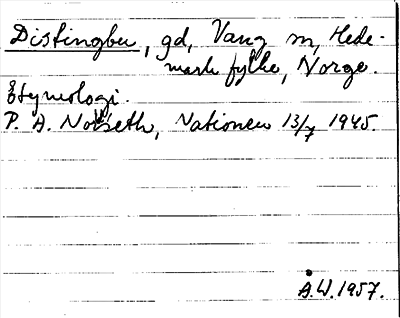 Distingbu, gd, Vang sn, Hede-
mark fylke, Norge.
Etymologi.
P. A. Notseth, Nationen 13/7 1945.
A.W. 1957.